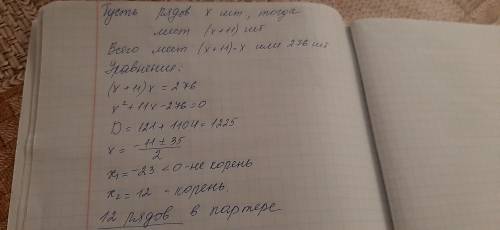 Пусть рядов x шт, тогда
мест (x+11) шт
Всего мест (x+11)·x или 276 шт
Уравнение:
(x+11)x = 276
x²+11x-276=0
D = 121+1104=1225
x = -11±35/2
x₁=-23<0-не корень
x₂=12 - корень.
12 рядов в партере